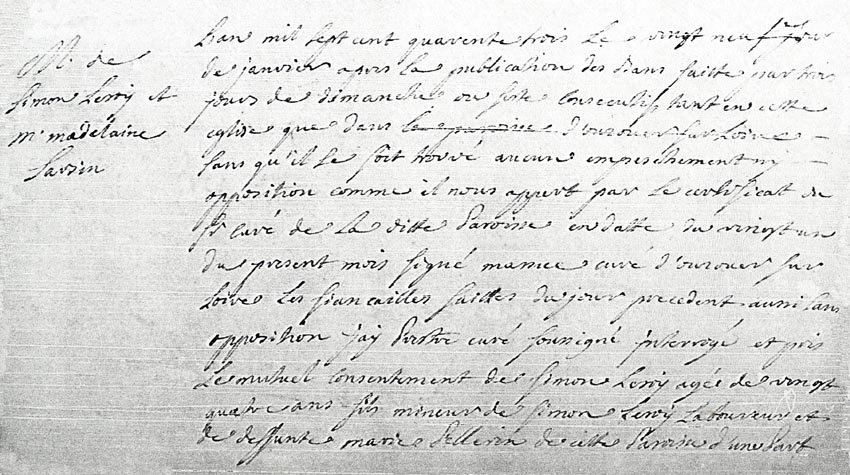 M. de
Simon Leroy et
M. madelaine
Sarsin
Lan mil sept cent quarente trois Le vingt neuf jour
de janvier apres la publication des Bans faitte par trois
jours de dimanche ou feste Consecutifs tant en cette
eglise que dans la paroisse d'ourouer sur Loire
sans qu'il se soit trouvé aucun empeschement ny
opposition comme il nous appert par le certificat de
Sr curé de La ditte Paroisse en datte du vingt un
du present mois signé curé d'ourouer sur
Loire Les fiancailles faittes du jour precedent aussi sans
opposition j'ay Prestre curé soussigné interrogé et pris
Le mutuel consentement de Simon Leroy agé de vingt
quatre ans fils mineur de Simon Leroy Laboureur et
de deffunte marie Pellerin de cette Paroisse d'une Part